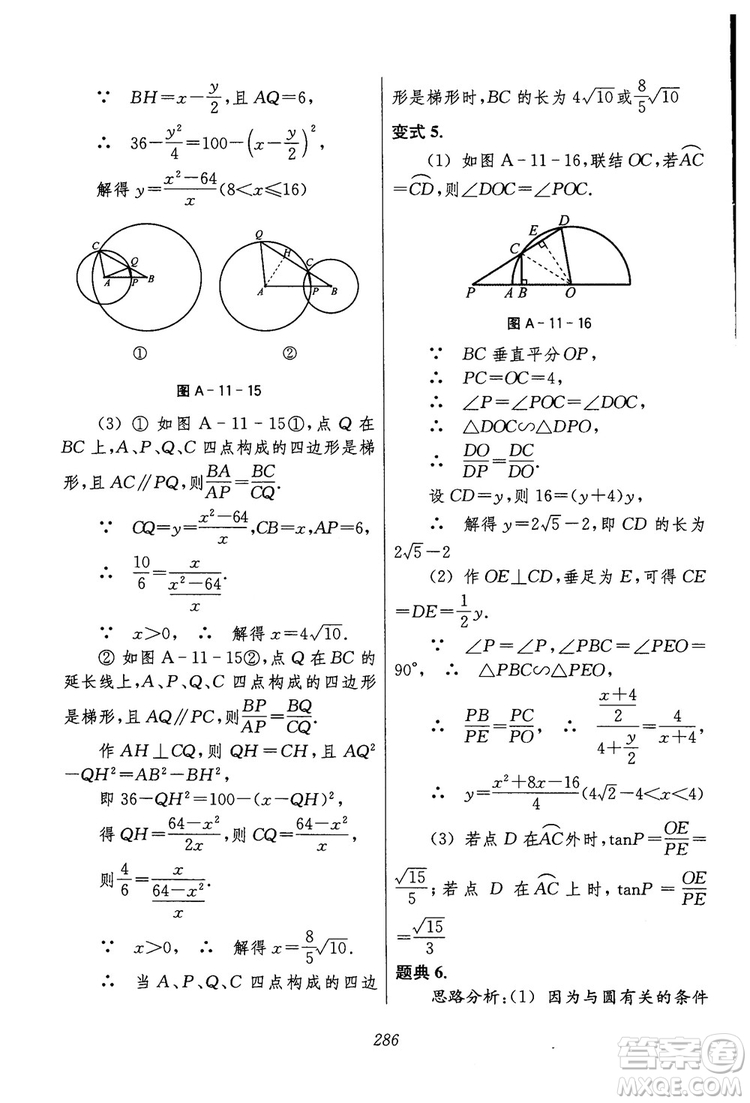 ∵ BH=x-y/2,且 AQ=6,
∴ 36-y²/4=100-(x-y/2)²,
解得 y=(x²-64)/x(8<x≤16)
C Q A P B
Q H C A P B
① ②
图 A-11-15
(3) ① 如图 A-11-15①,点 Q 在
BC 上,A、P、Q、C 四点构成的四边形是梯
形,且 AC∥PQ,则BA/AP=BC/CQ.
∵ CQ=y=(x²-64)/x,CB=x,AP=6,
∴ 10/6=x/((x²-64)/x).
∵ x>0, ∴ 解得 x=4√10.
② 如图 A-11-15②,点 Q 在 BC 的
延长线上,A、P、Q、C 四点构成的四边形
是梯形,且 AQ∥PC,则BP/AP=BQ/CQ.
作 AH⊥CQ,则 QH=CH,且 AQ²
-QH²=AB²-BH²,
即 36-QH²=100-(x-QH)²,
得 QH=(64-x²)/2x,则 CQ=(64-x²)/x,
则4/6=x/((64-x²)/x)
∵ x>0, ∴ 解得 x=8/5√10.
∴ 当 A、P、Q、C 四点构成的四边
形是梯形时,BC 的长为 4√10或8/5√10
变式 5.
(1) 如图 A-11-16,联结 OC,若AC⌒
=CD⌒,则∠DOC=∠POC.
D E C P A B O
图 A-11-16
∵ BC 垂直平分 OP,
∴ PC=OC=4,
∴ ∠P=∠POC=∠DOC,
∴ △DOC∽△DPO,
∴ DO/DP=DC/DO.
设 CD=y,则 16=(y+4)y,
∴ 解得 y=2√5-2,即 CD 的长为
2√5-2
(2) 作 OE⊥CD,垂足为 E,可得 CE
=DE=1/2y.
∵ ∠P=∠P,∠PBC=∠PEO=
90°, ∴ △PBC∽△PEO,
∴ PB/PE=PC/PO, ∴ ((x+4)/2)/(4+y/2)=4/(x+4),
∴ y=(x²+8x-16)/4(4√2-4<x<4)
(3) 若点 D 在AC⌒外时,tanP=OE/PE=
√15/5;若点 D 在AC⌒上时,tanP=OE/PE
=√15/3
题典 6.
思路分析:(1) 因为与圆有关的条件
286
答案圈